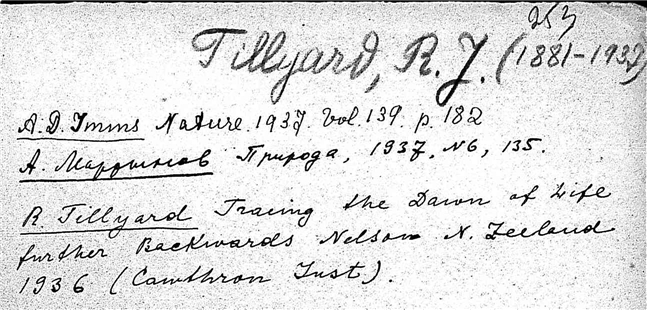 253
Tillyard, R. J. (1881-1937)
A. D. Imms Nature. 1937. Vol. 139. p. 182
А. Мартынов Природа, 1937, N6, 135.
R. Tillyard Tracing the Dawn of Life
further Backwards Nelson N. Zeeland
1936 (Cawthron Inst).